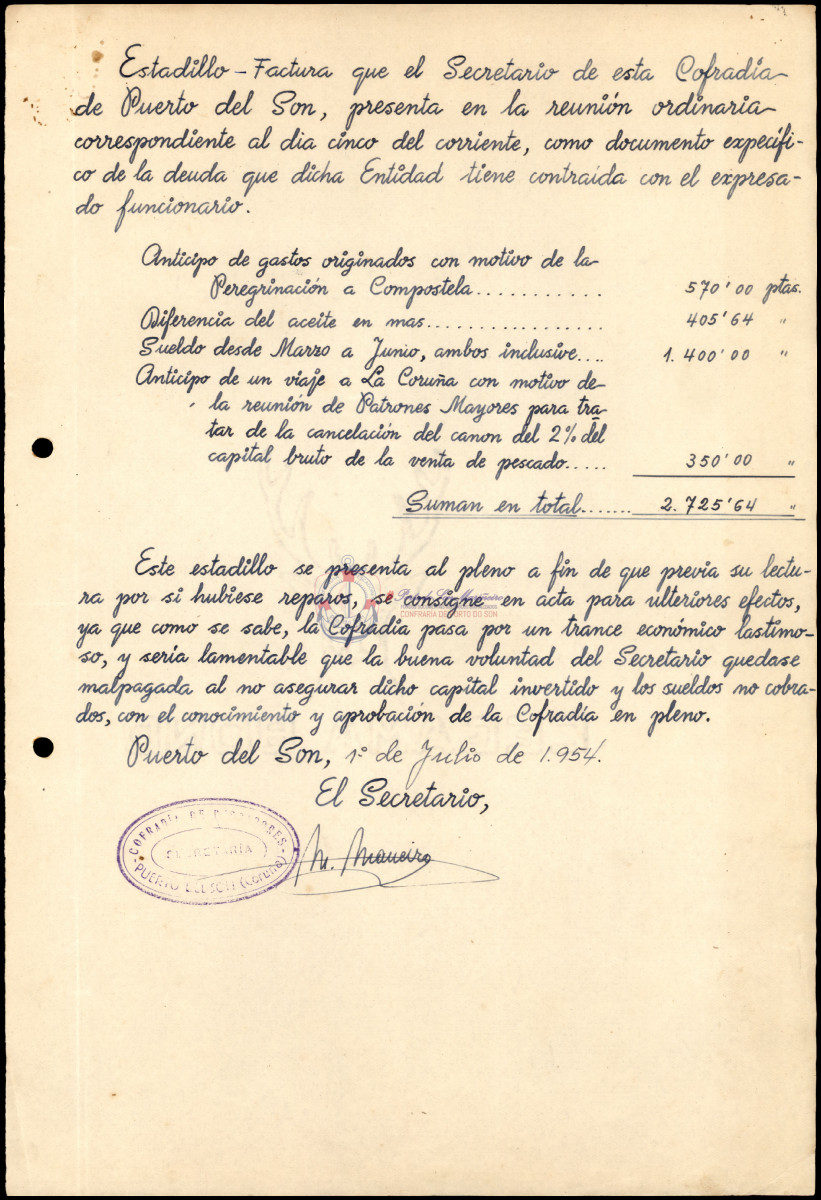 Estadillo - Factura que el Secretario de esta Cofradía
de Puerto del Son, presenta en la reunión ordinaria
correspondiente al dia cinco del corriente, como documento expecífi-
co de la deuda que dicha Entidad tiene contraída con el expresa-
do funcionario.
Anticipo de gastos originados con motivo de la
Peregrinación a Compostela............ 570'00 ptas.
Diferencia del aceite en mas.................. 405'64 "
Sueldo desde Marzo a Junio, ambos inclusive.... 1.400'00 "
Anticipo de un viaje a La Coruña con motivo de
la reunión de Patrones Mayores para tra-
tar de la cancelación del canon del 2% del
capital bruto de la venta de pescado..... 350'00 "
Suman en total....... 2.725'64 "
Este estadillo se presenta al pleno a fin de que previa su lectu-
ra por si hubiese reparos, se consigne en acta para ulteriores efectos,
CONFRARÍA DE PORTO DO SON
ya que como se sabe, la Cofradía pasa por un trance económico lastimo-
so, y sería lamentable que la buena voluntad del Secretario quedase
malpagada al no asegurar dicho capital invertido y los sueldos no cobra-
dos, con el conocimiento y aprobación de la Cofradía en pleno.
Puerto del Son, 1º de Julio de 1.954.
El Secretario,
COFRADÍA DE PESCADORES
SECRETARÍA
PUERTO DEL SON (Coruña)
M. Maneiro